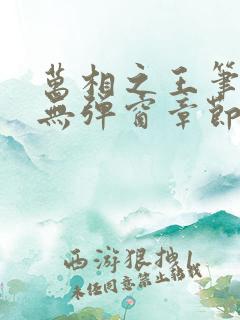 萬相之王筆
無彈窗章節
西游狠拽1
未经同意禁止转载